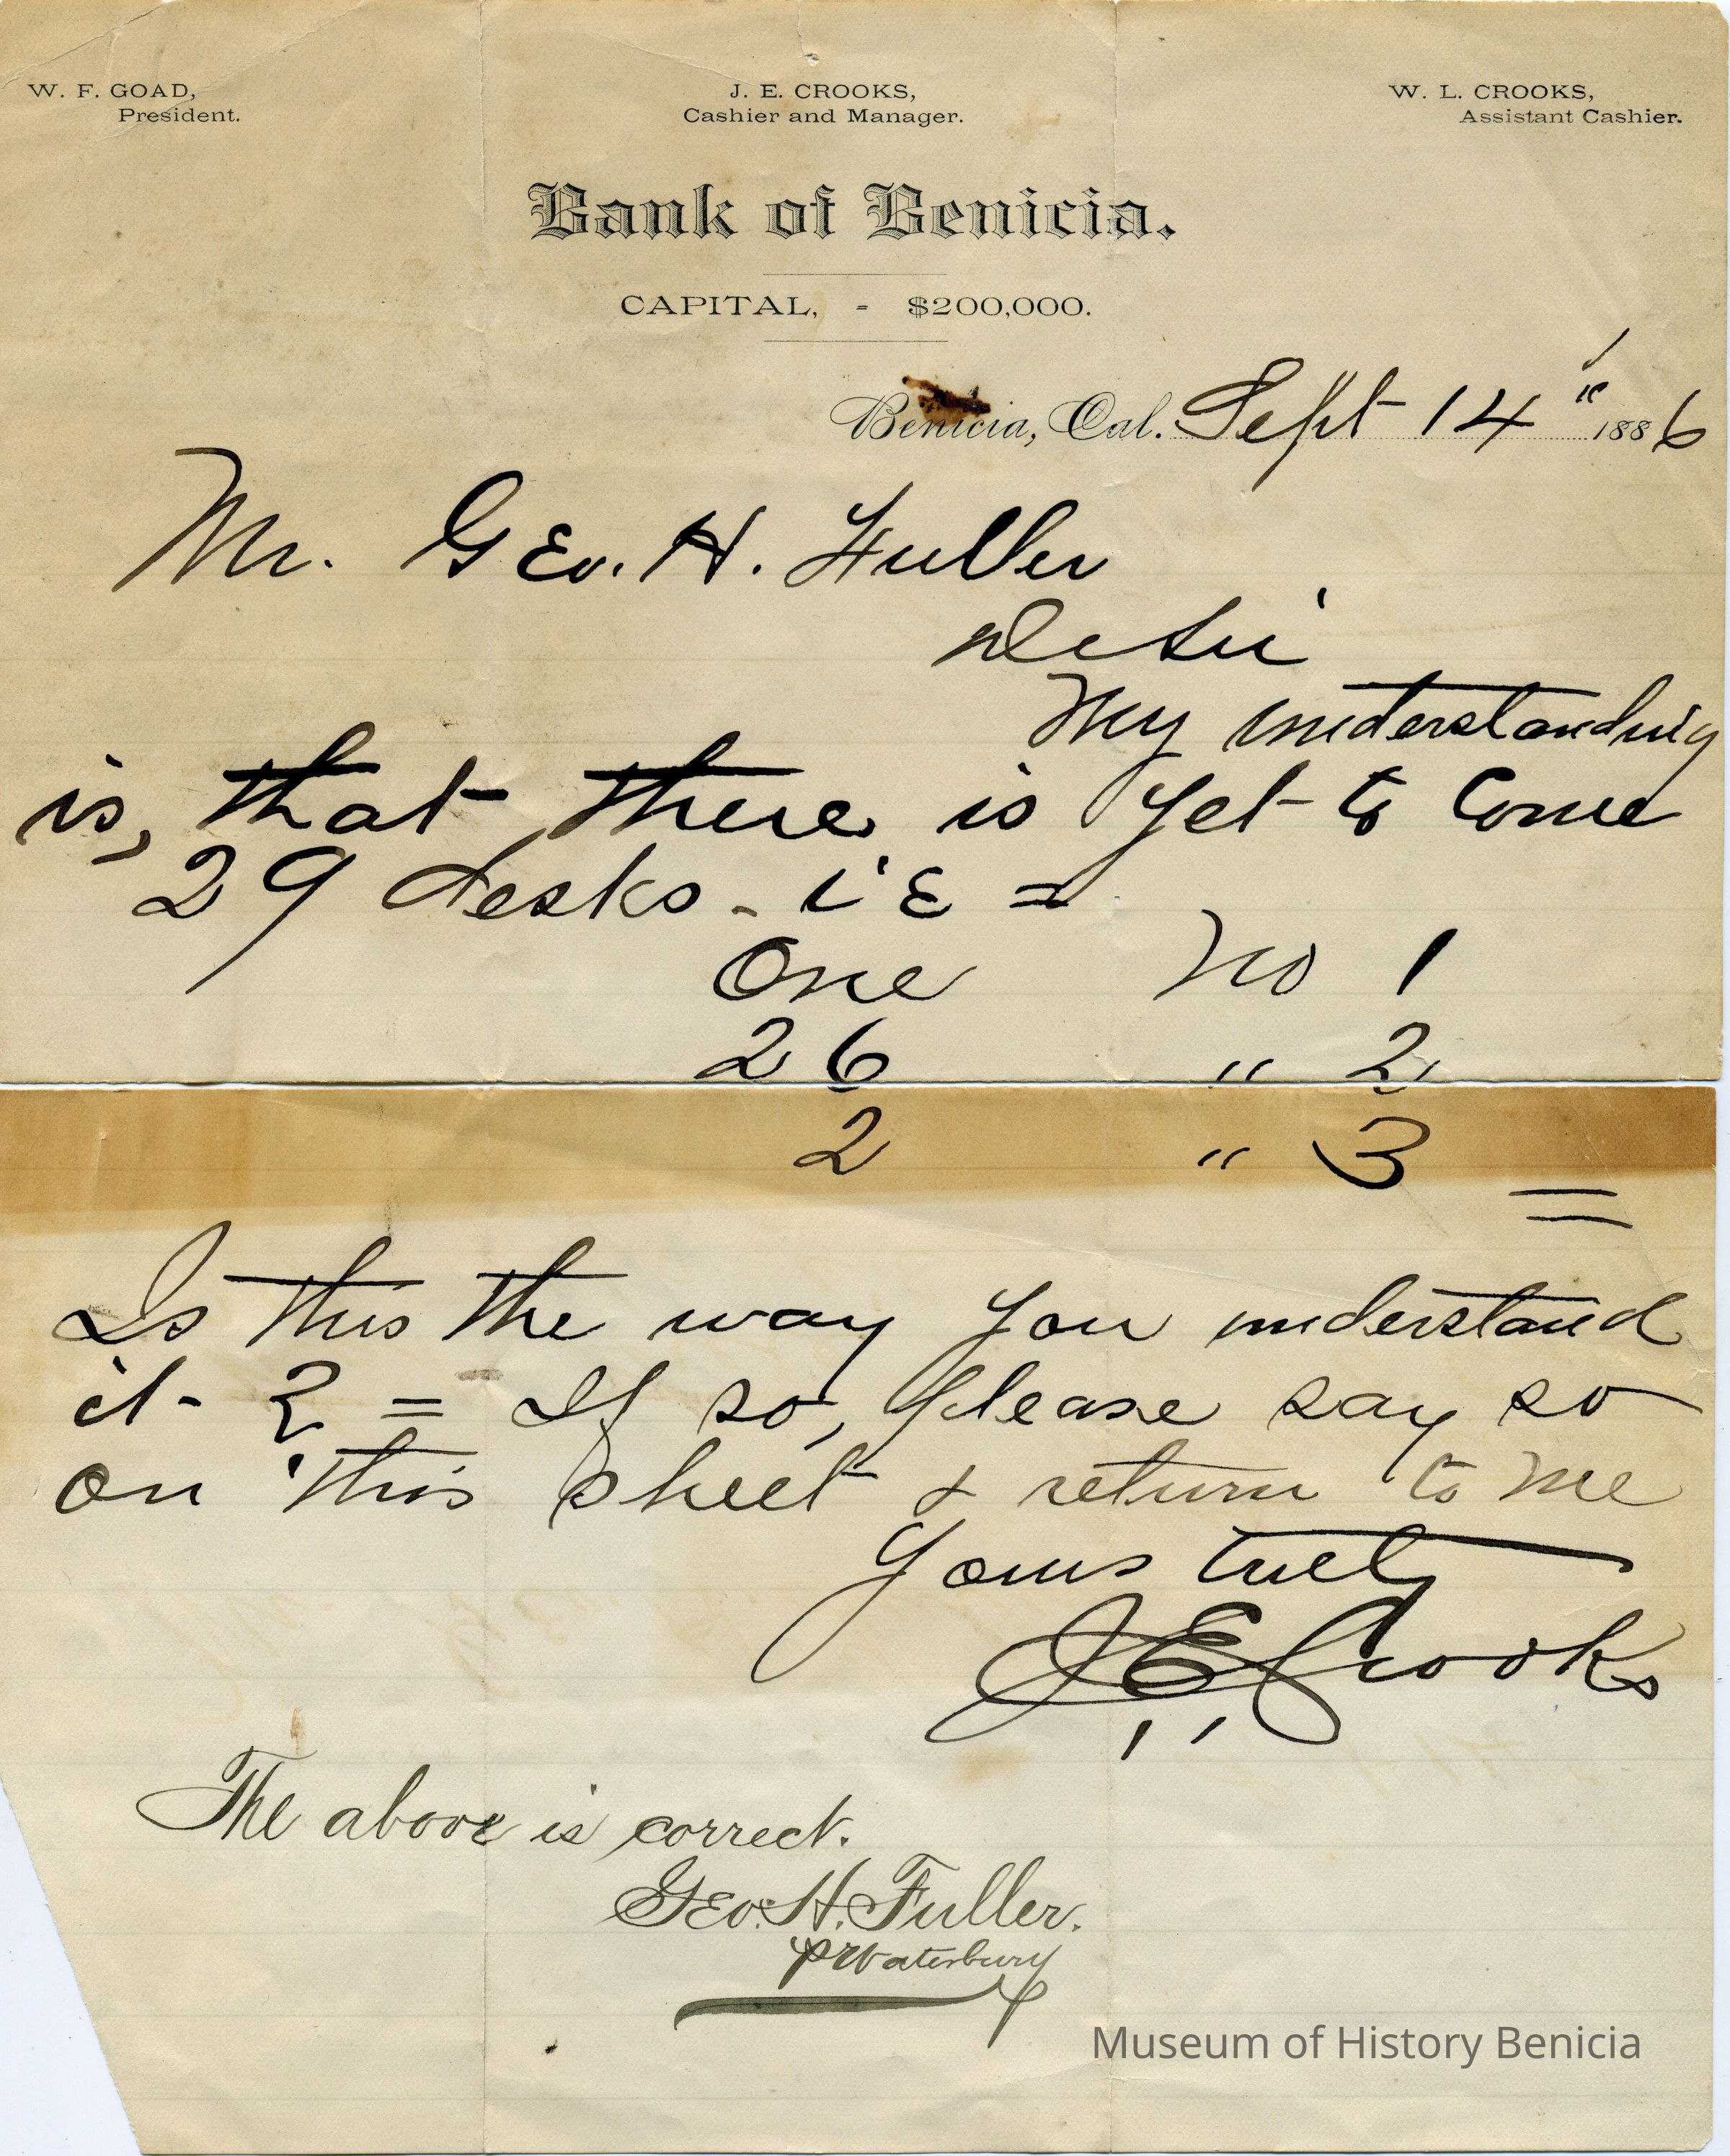 W. F. GOAD,
President.
J. E. CROOKS,
Cashier and Manager.
W. L. CROOKS,
Assistant Cashier.
Bank of Benicia.
CAPITAL, - $200,000.
Benicia, Cal. Sept 14" 1886
Mr. Geo. H. Fuller
D Sir
My understanding
is, that there is yet to come
29 desks - i E =
One No 1
26 " 2
2 " 3 =
Is this the way you understand
it - ? = If so, please say so
on this sheet & return to me
Yours truly
J E Crooks
The above is correct.
Geo. H. Fuller.
Waterbury
Museum of History Benicia